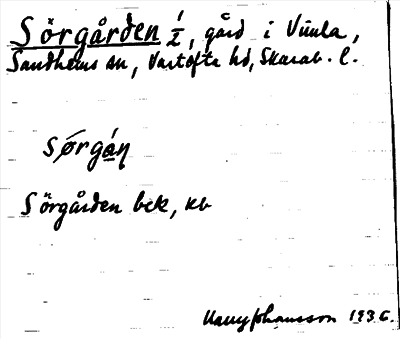 Sörgården 1/2, gård i Vuula,
Sandhems sn, Vartofta hd, Skarab. l.
sørgáŋ
Sörgården bek, kb
Harry Johansson 1936.